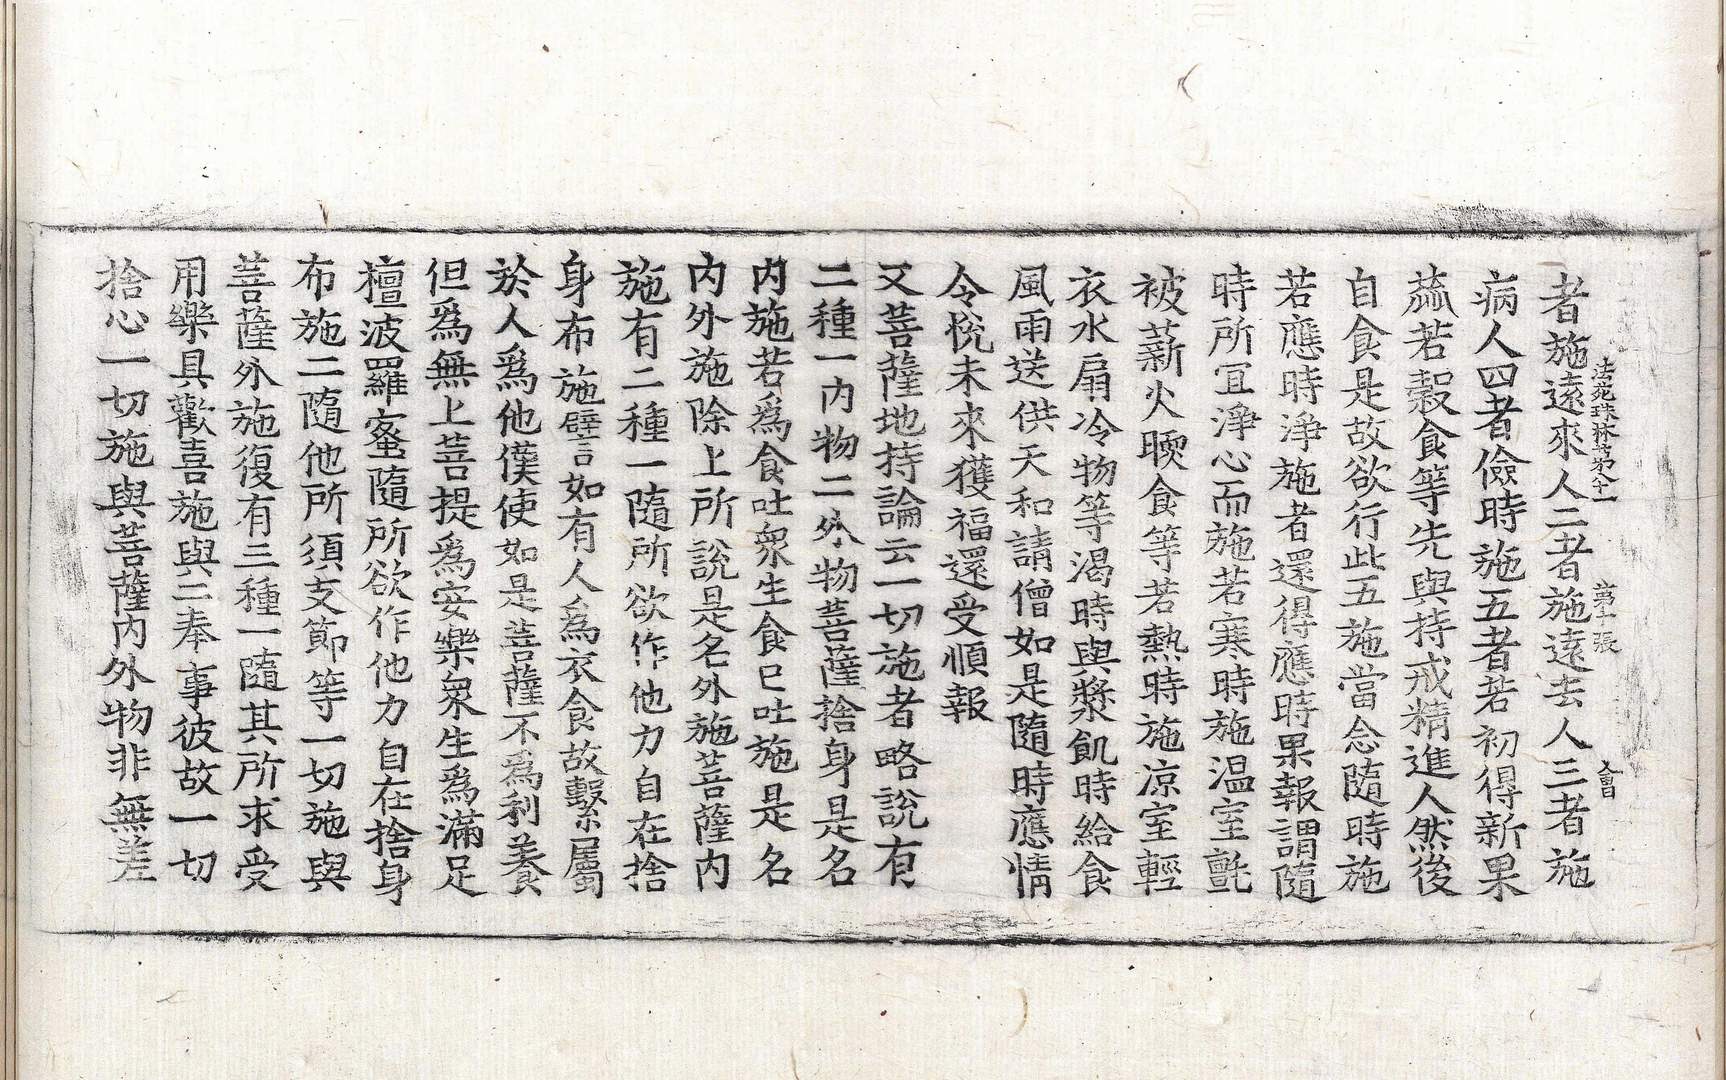 法苑珠林第八十一 第十一張
者施遠來人二者施遠去人三者施
病人四者儉時施五者若初得新果
蓏若穀食等先與持戒精進人然後
自食是故欲行此五施當念隨時施
若應時淨施者還得應時果報謂隨
時所冝淨心而施若寒時施温室氈
被薪火煗食等若熱時施凉室輕
衣水扇冷物等渴時與漿飢時給食
風雨送供天和請僧如是隨時應情
令悅未來獲福還受順報
又菩薩地持論云一切施者略說有
二種一内物二外物菩薩捨身是名
内施若爲食吐衆生食已吐施是名
内外施除上所說是名外施菩薩内
施有二種一隨所欲作他力自在捨
身布施譬如有人爲衣食故繫屬
於人爲他僕使如是菩薩不爲利養
但爲無上菩提爲安樂衆生爲滿足
檀波羅蜜隨所欲作他力自在捨身
布施二隨他所須支節等一切施與
菩薩外施復有三種一隨其所求受
用樂具歡喜施與二奉事彼故一切
捨心一切施與菩薩内外物非無差